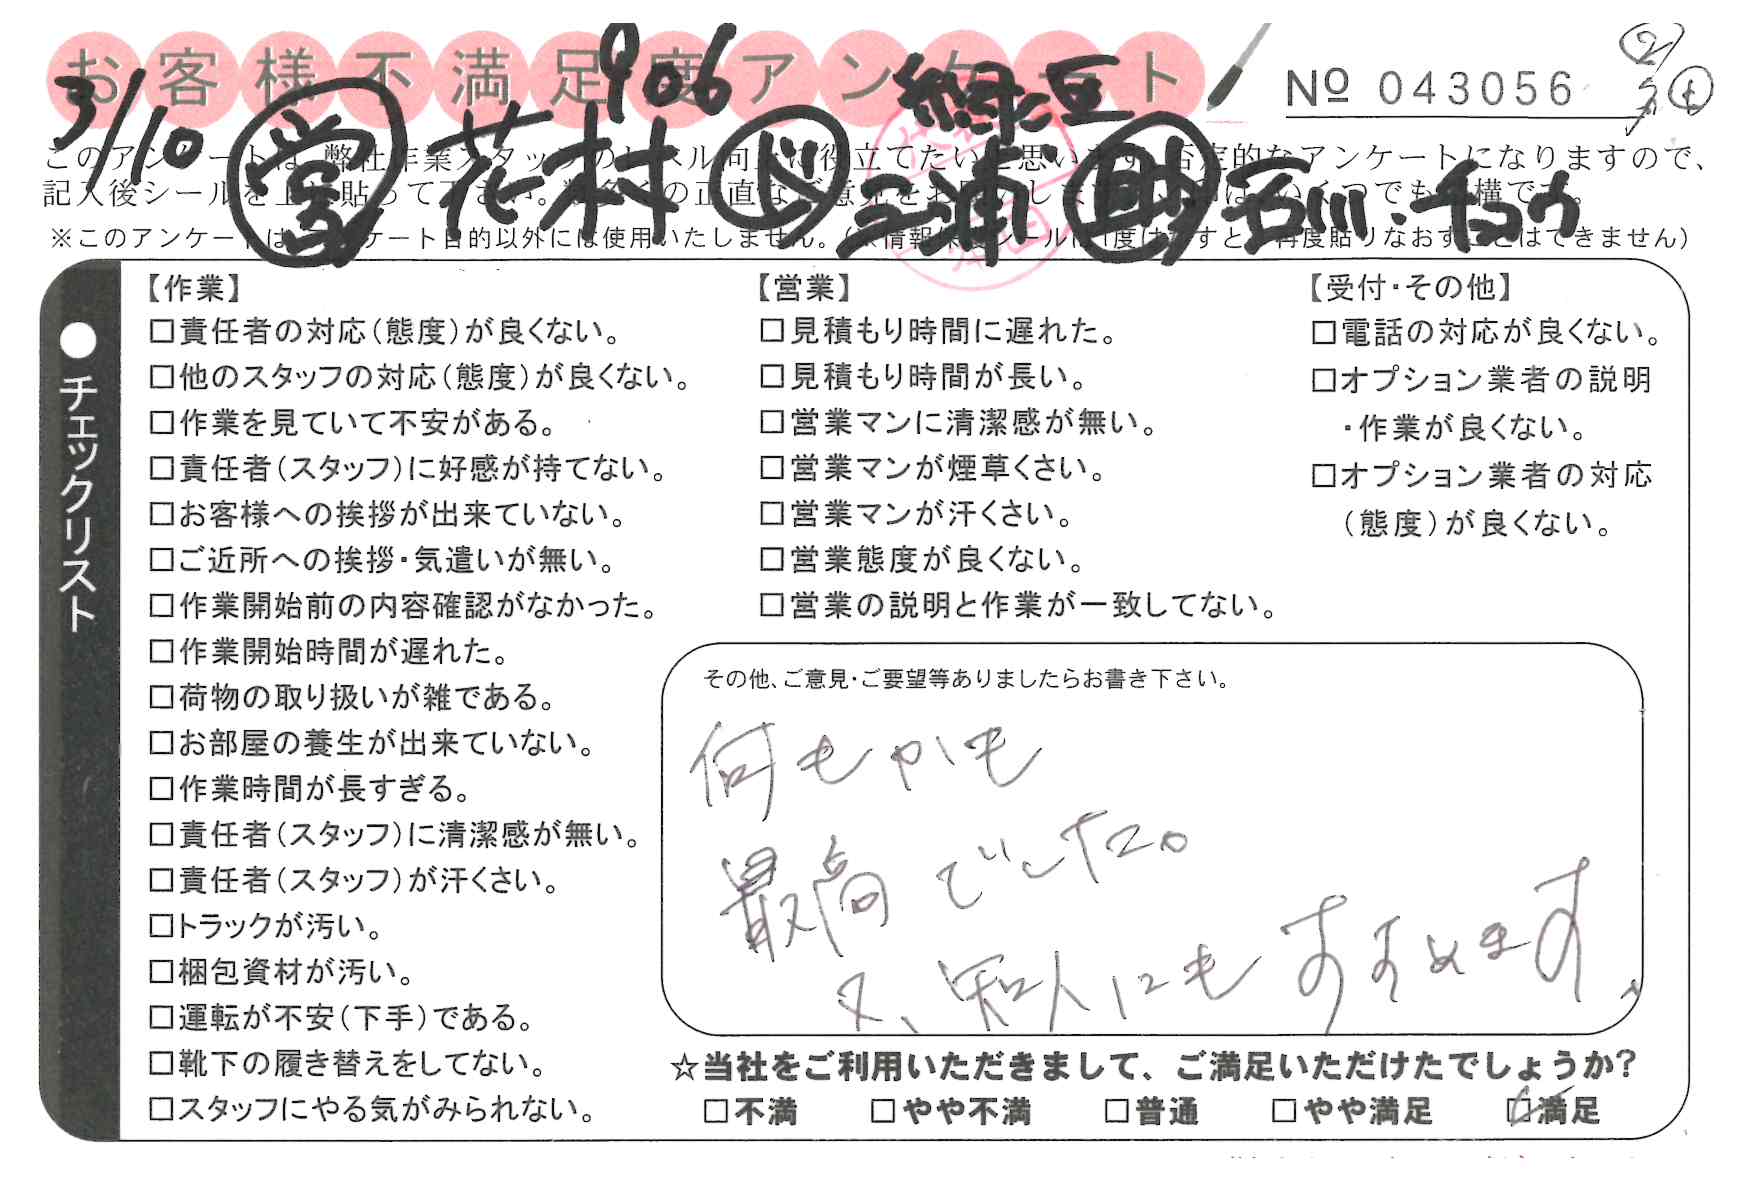 お客様不満足度アンケート
906
緑豆
No 043056
3/10 営 花村 ド 三浦 助 石川・チョウ
このアンケートは、弊社作業スタッフのレベル向上に役立てたいと思います。否定的なアンケートになりますので、
記入後シールを上に貼って下さい。数多くの正直なご意見をお願いします。いくつでも結構です。
※このアンケートは、アンケート目的以外には使用いたしません。(※情報保護シールは1度はがすと、再度貼りなおすことはできません)
●チェックリスト
【作業】
□責任者の対応(態度)が良くない。
□他のスタッフの対応(態度)が良くない。
□作業を見ていて不安がある。
□責任者(スタッフ)に好感が持てない。
□お客様への挨拶が出来ていない。
□ご近所への挨拶・気遣いが無い。
□作業開始前の内容確認がなかった。
□作業開始時間が遅れた。
□荷物の取り扱いが雑である。
□お部屋の養生が出来ていない。
□作業時間が長すぎる。
□責任者(スタッフ)に清潔感が無い。
□責任者(スタッフ)が汗くさい。
□トラックが汚い。
□梱包資材が汚い。
□運転が不安(下手)である。
□靴下の履き替えをしてない。
□スタッフにやる気がみられない。
【営業】
□見積もり時間に遅れた。
□見積もり時間が長い。
□営業マンに清潔感が無い。
□営業マンが煙草くさい。
□営業マンが汗くさい。
□営業態度が良くない。
□営業の説明と作業が一致してない。
【受付・その他】
□電話の対応が良くない。
□オプション業者の説明
・作業が良くない。
□オプション業者の対応
(態度)が良くない。
その他、ご意見・ご要望等ありましたらお書き下さい。
何もかも
最高でした。
又、知人にもすすめます
☆当社をご利用いただきまして、ご満足いただけたでしょうか?
□不満 □やや不満 □普通 □やや満足 □満足